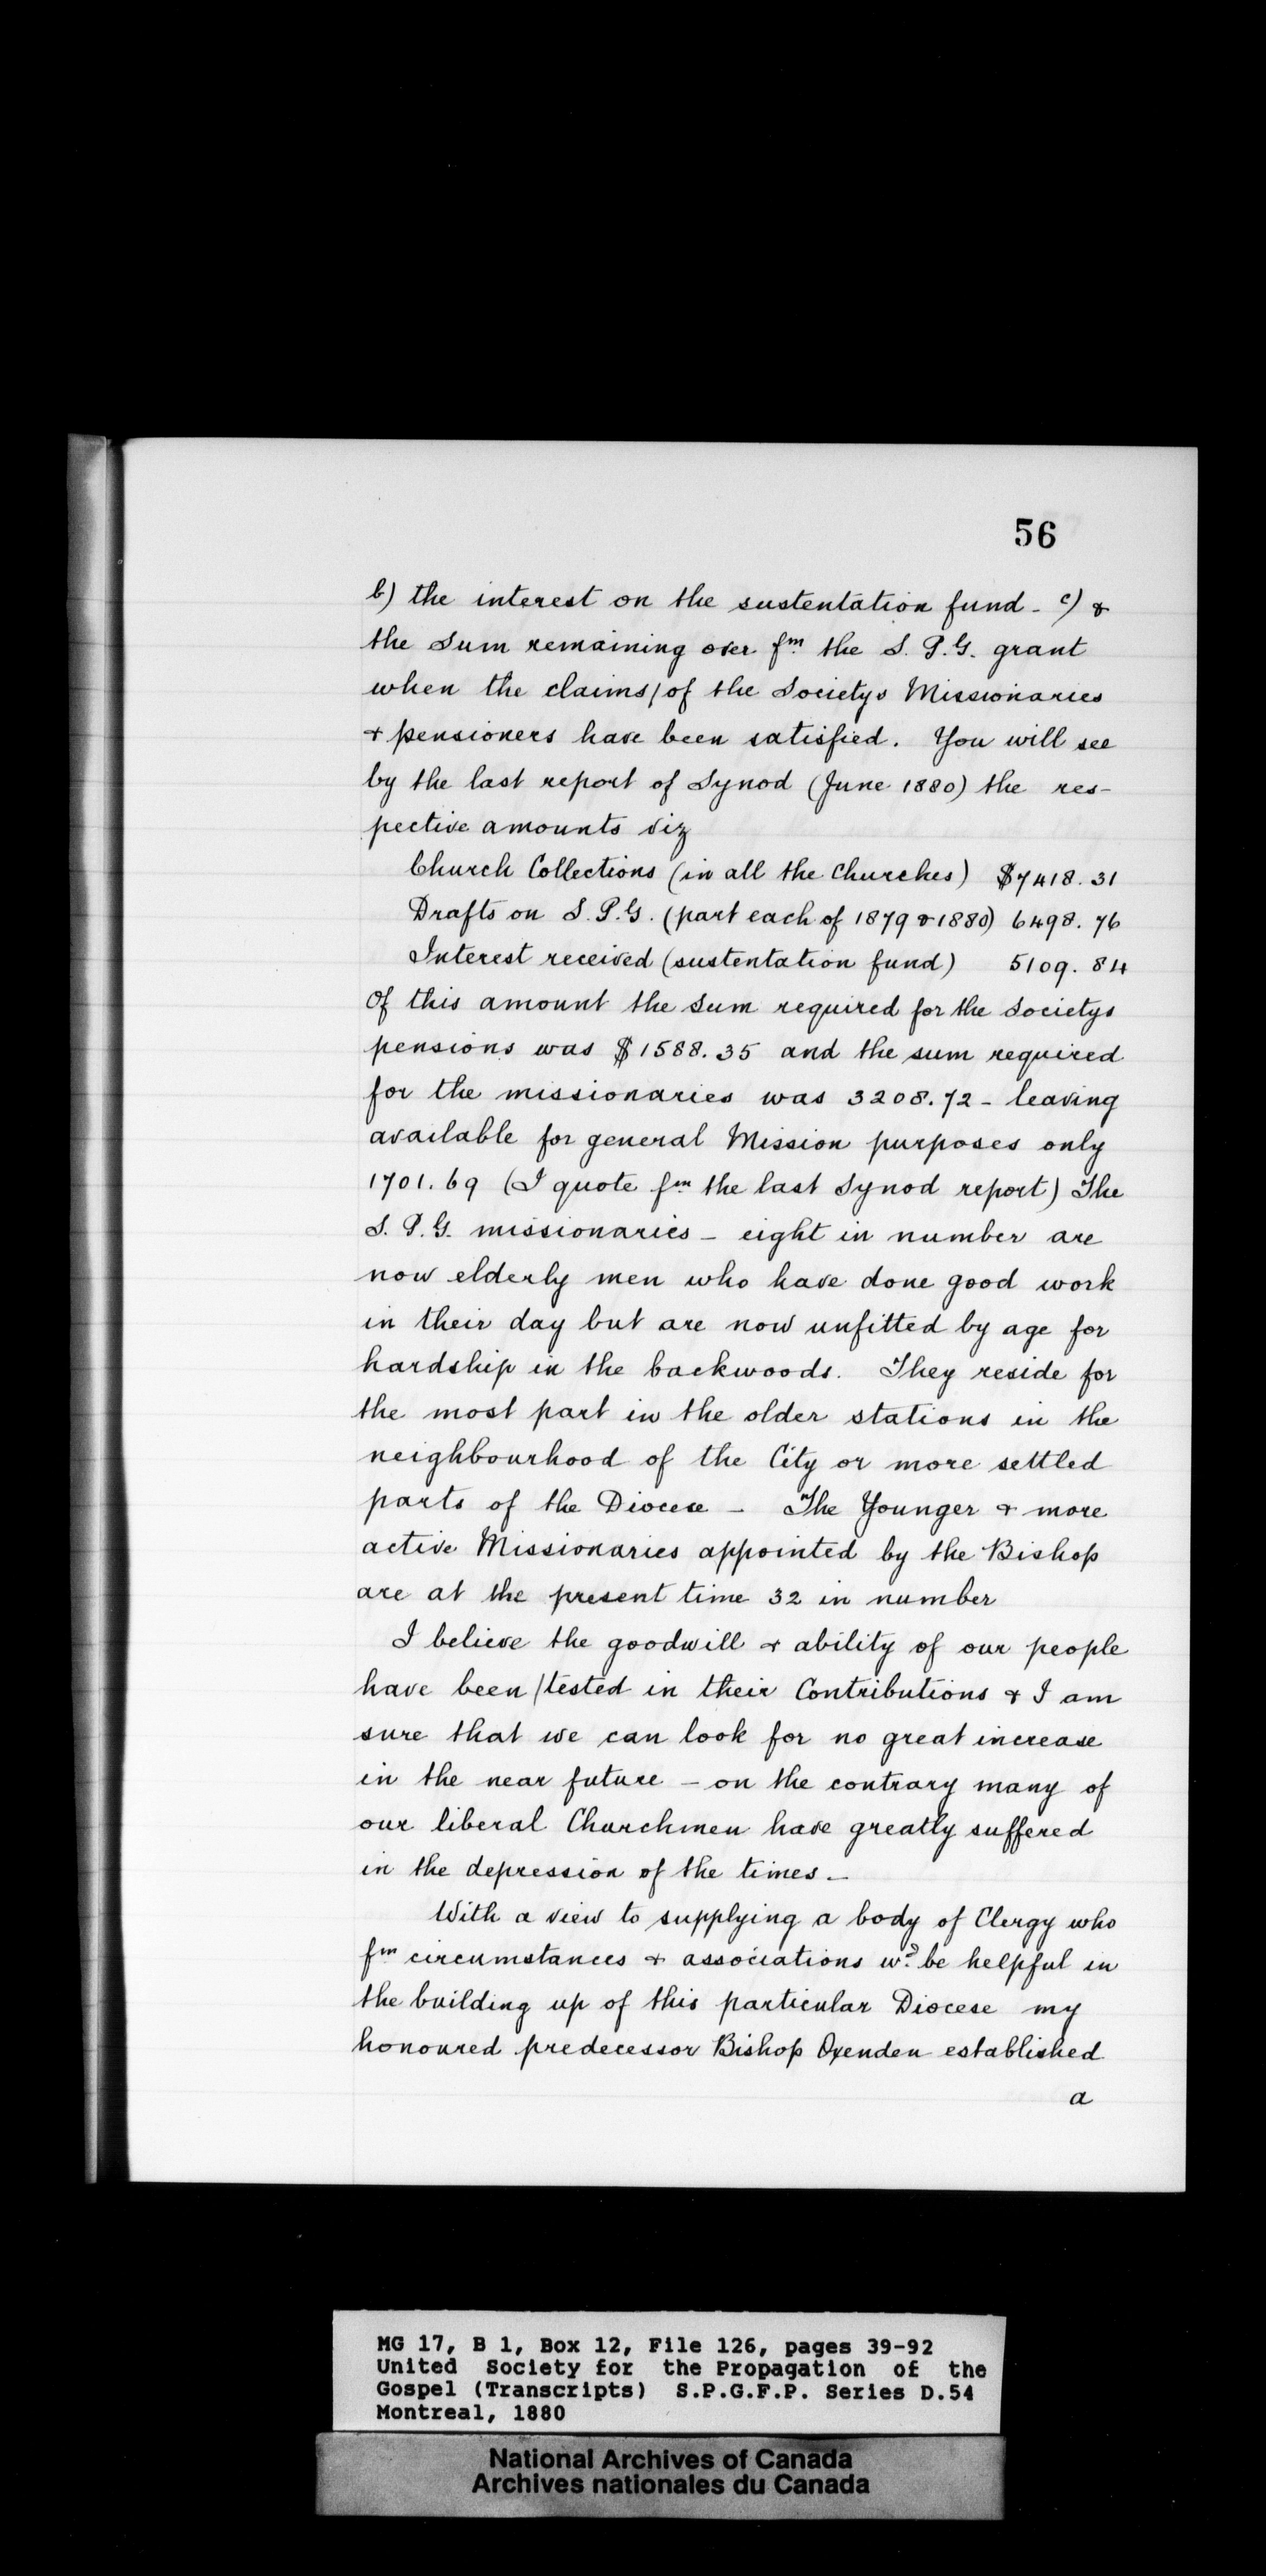 56
b) the interest on the sustentation fund - c) &
the Sum remaining over fm. the S. P. G. grant
when the claims/of the Societys Missionaries
& pensioners have been satisfied. You will see
by the last report of Synod (June 1880) the res-
pective amounts viz
Church Collections (in all the Churches) $7418.31
Drafts on S. P. G. (part each of 1879 & 1880) 6498.76
Interest received (sustentation fund) 5109.84
Of this amount the sum required for the Societys
pensions was $1588.35 and the sum required
for the missionaries was 3208.72 - leaving
available for general Mission purposes only
1701.69 (I quote fm the last Synod report) The
S. P. G. missionaries - eight in number are
now elderly men who have done good work
in their day but are now unfitted by age for
hardship in the backwoods. They reside for
the most part in the older stations in the
neighbourhood of the City or more settled
parts of the Diocese - The Younger & more
active Missionaries appointed by the Bishop
are at the present time 32 in number
I believe the goodwill & ability of our people
have been/tested in their Contributions & I am
sure that we can look for no great increase
in the near future - on the contrary many of
our liberal Churchmen have greatly suffered
in the depression of the times -
With a view to supplying a body of Clergy who
fm circumstances & associations wd. be helpful in
the building up of this particular Diocese my
honoured predecessor Bishop Oxenden established
a
MG 17, B 1, Box 12, File 126, pages 39-92
United Society for the Propagation of the
Gospel (Transcripts) S.P.G.F.P. Series D.54
Montreal, 1880
National Archives of Canada
Archives nationales du Canada